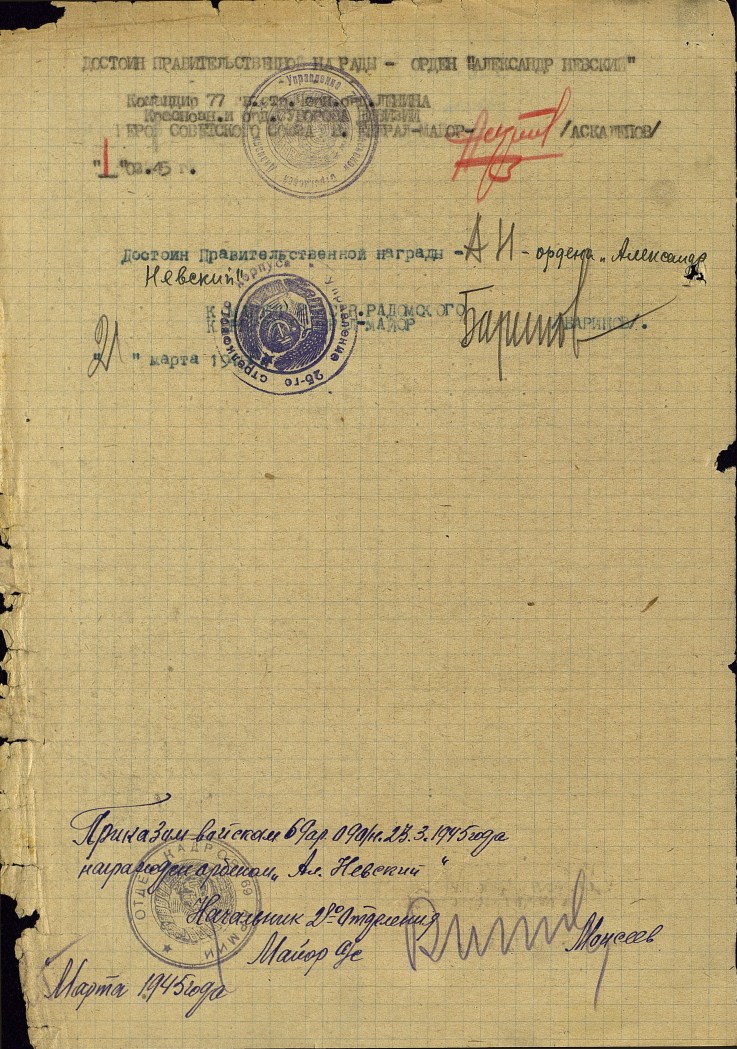 ДОСТОИН ПРАВИТЕЛЬСТВЕННОЙ НАГРАДЫ - ОРДЕН "АЛЕКСАНДР НЕВСКИЙ"
Командир 77 гв.стр.Черн.орд.ЛЕНИНА
Краснозн.и орд.СУВОРОВА ДИВИЗИИ
ГЕРОЙ СОВЕТСКОГО СОЮЗА ГВ. ГЕНЕРАЛ-МАЙОР- /АСКАЛЕПОВ/
"1" 02.45 г.
Управление
Достоин Правительственной награды - АН - ордена "Александр
Невский"
РАДОМСКОГО
-МАЙОР Баринов /БАРИНОВ/.
"21" марта 19
Управление 25-го стрелкового корпуса
Приказом войскам 69ар. 090/н. 23.3.1945 года
награжден орденом "Ал. Невский"
ОТДЕЛ КАДРОВ 69 АРМИИ
Начальник 2го Отделения
Майор а/с Моисеев
Марта 1945 года